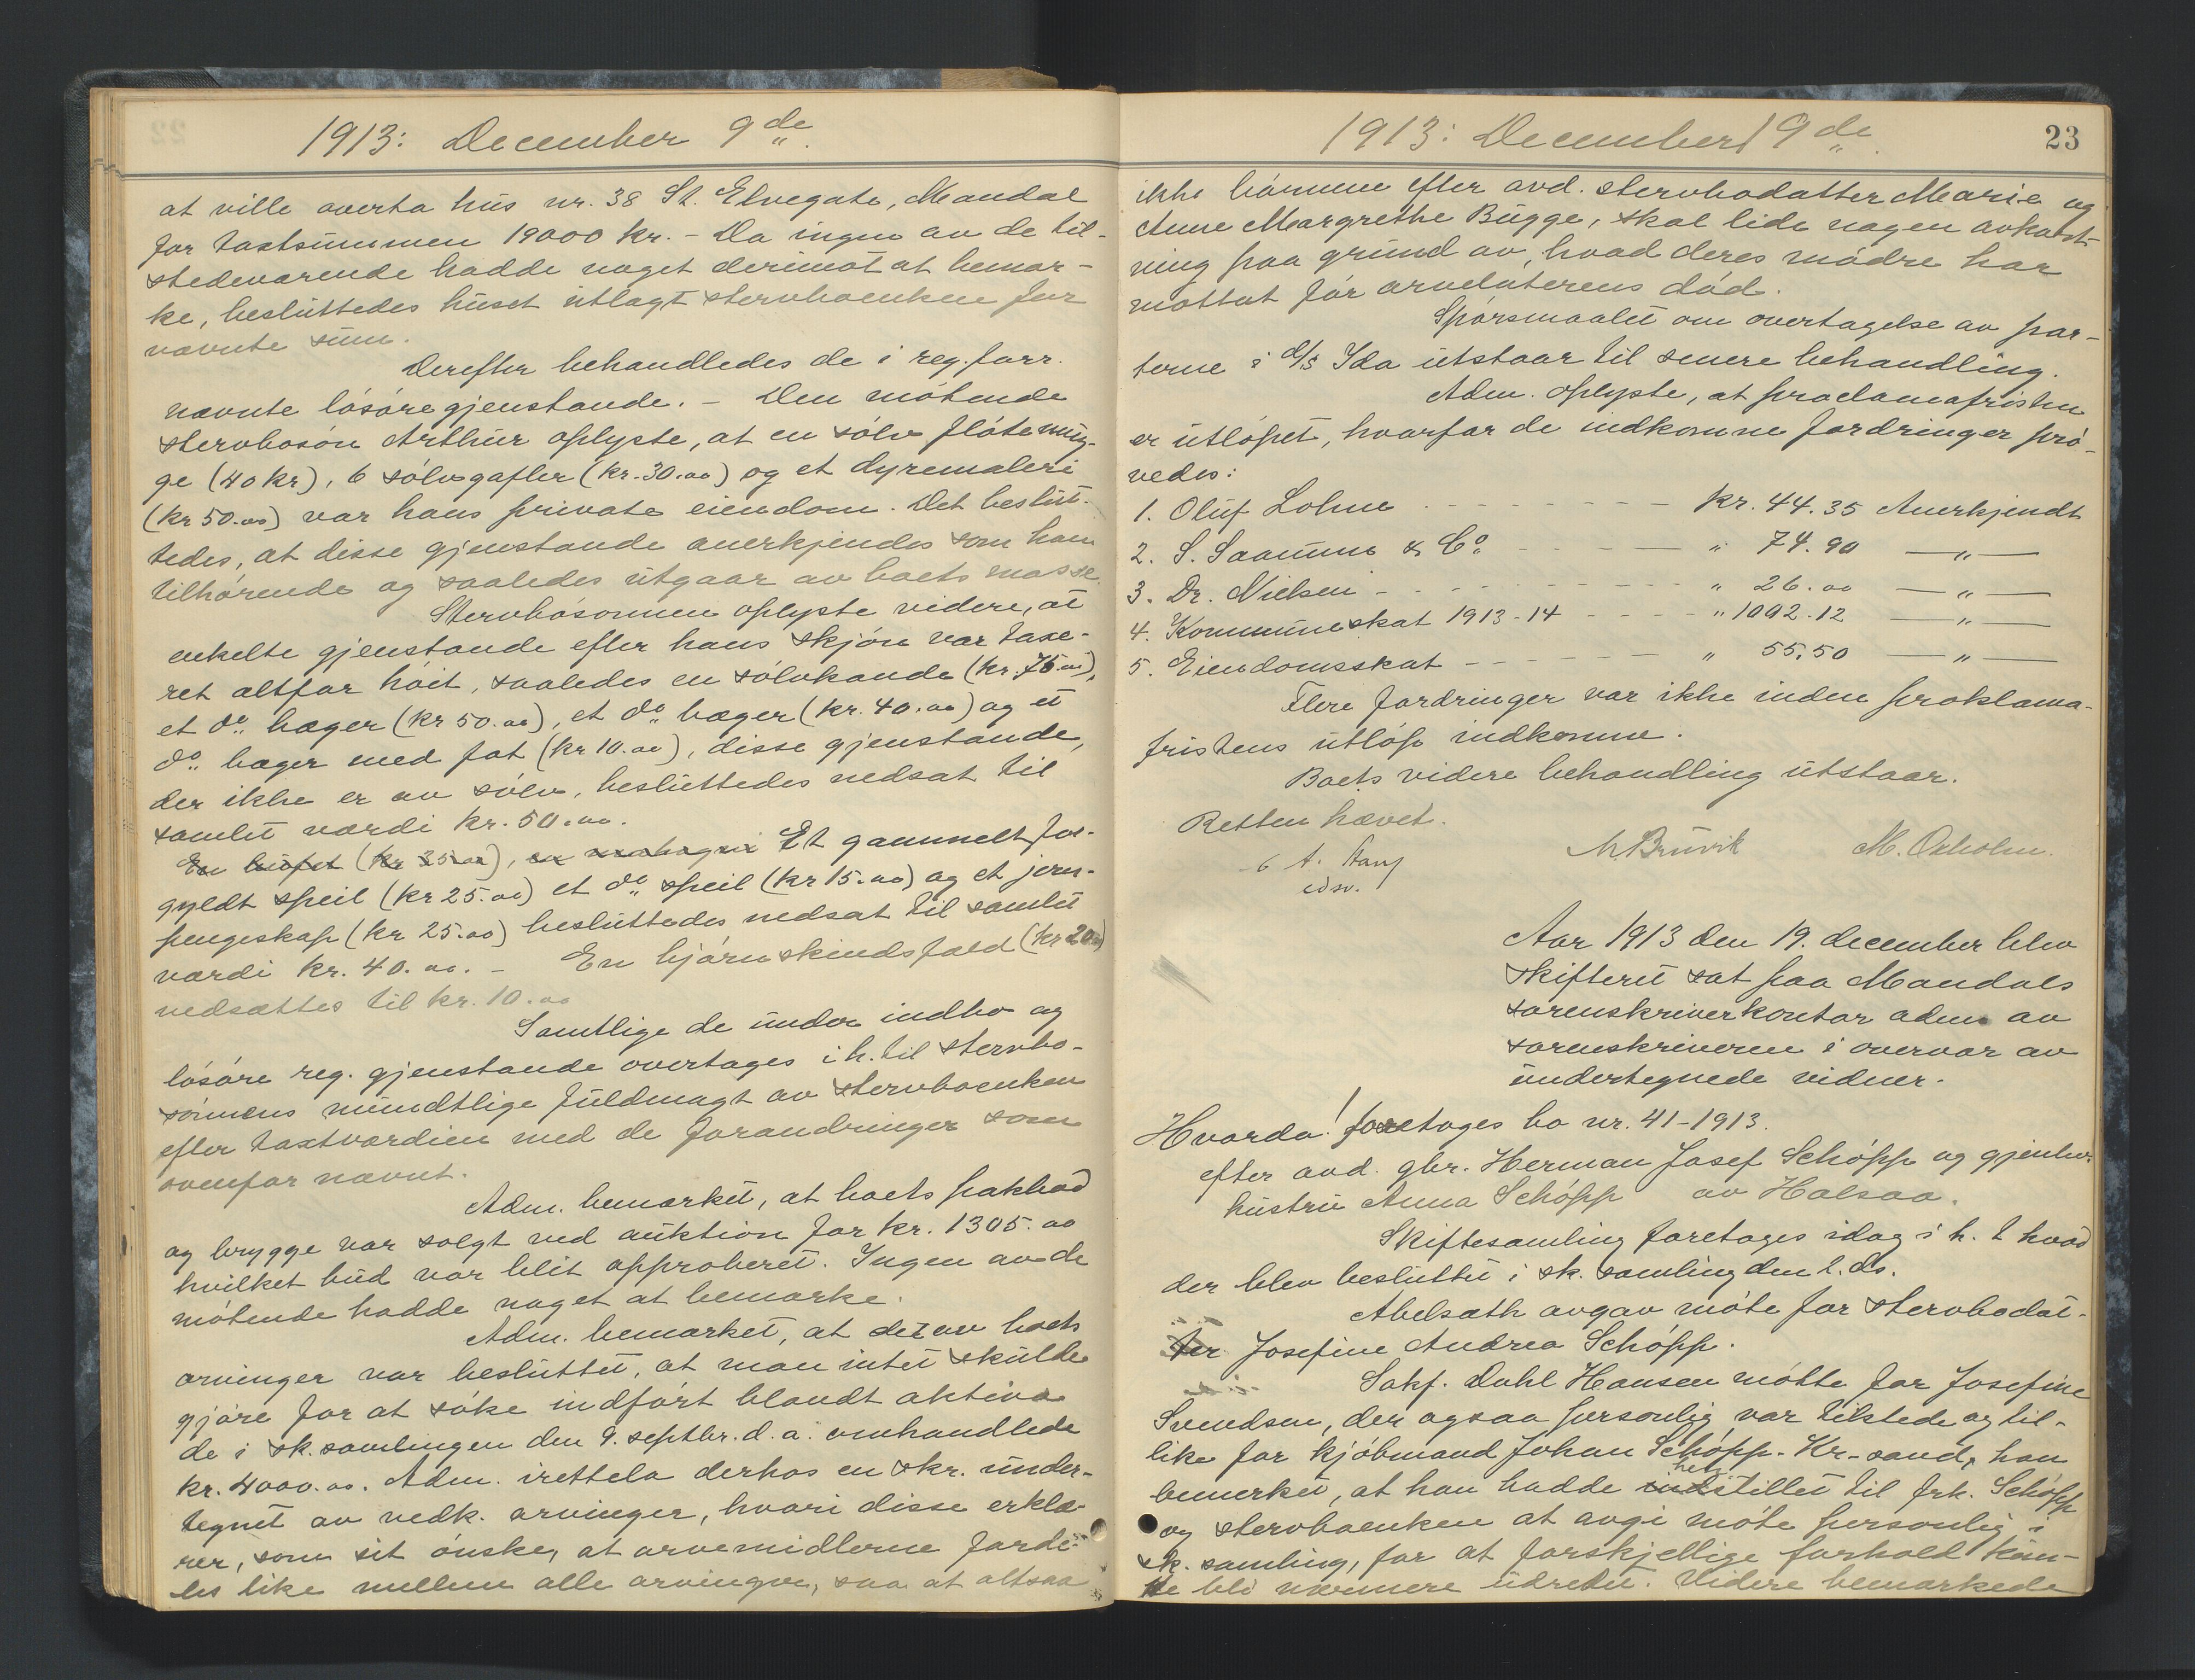 1913: December 9de
at ville overta hus nr. 38 St. Elvegate, Mandal
for taxtsummen 19000 kr. – Da ingen av de til-
stedeværende hadde noget derimot at bemær-
ke, besluttedes huset utlagt stervboenken for
nævnte sum.
Derefter behandledes de i reg.forr.
nævnte løsøregjenstande. – Den møtende
stervbosøn Arthur oplyste, at en sølv fløtemug-
ge (40 kr), 6 sølvgafler (kr. 30.00) og et dyremaleri
(kr 50.00) var hans private eiendom. Det beslut-
tedes, at disse gjenstande anerkjendes som ham
tilhørende og saaledes utgaar av boets masse.
Stervbosønnen oplyste videre, at
enkelte gjenstande efter hans skjøn var taxe-
ret altfor høit, saaledes en sølvkande (kr. 75.00),
et do. bæger (kr 50.00), et do. bæger (kr. 40.00) og et
do. bæger med fat (kr 10.00), disse gjenstande,
der ikke er av sølv, besluttedes nedsat til
samlet værdi kr. 50.00.
En buffet (kr 35.00), Et gammelt for-
gyldt speil (kr 25.00) et do. speil (kr 15.00) og et jern-
pengeskap (kr 25.00) besluttedes nedsat til samlet
værdi kr. 40.00. – En bjørnskindsfæld (kr 20.00)
nedsættes til kr. 10.00
Samtlige de under indbo og
løsøre reg. gjenstande overtages i h. til stervbo-
sønnens mundtlige fuldmagt av stervboenken
efter taxtværdien med de forandringer som
ovenfor nævnt.
Adm. bemærket, at boets pakbod
og brygge var solgt ved auktion for kr. 1305.00
hvilket bud var blit approberet. Ingen av de
møtende hadde noget at bemærke.
Adm. bemærket, at det av boets
arvinger var besluttet, at man intet skulde
gjøre for at søke indført blandt aktiva
de i sk.samlingen den 9. septbr. d.a. omhandlede
kr. 4000.00. Adm. irettela derhos en skr. under-
tegnet av vedk. arvinger, hvori disse erklæ-
rer, som sit ønske, at arvemidlerne forde-
les like mellem alle arvinger, saa at altsaa
1913: December 9de
23
ikke børnene efter avd. stervbodatter Marie og
Anne Margrethe Bugge, skal lide nogen avkort-
ning paa grund av, hvad deres mødre har
mottat før arveladerens død.
Spørsmaalet om overtagelse av par-
terne i d/s Ida utstaar til senere behandling.
Adm. oplyste, at proclamafristen
er utløpet, hvorfor de indkomne fordringer prø-
vedes:
1. Oluf Lohne kr. 44.35 Anerkjendt
2. S. Saanum & Co. " 74.90 —"—
3. Dr. Nielsen " 26.00 —"—
4. Kommuneskat 1913-14 " 1092.12 —"—
5. Eiendomsskat " 55.50 —"—
Flere fordringer var ikke inden proklama-
fristens utløp indkomne.
Boets videre behandling utstaar.
Retten hævet.
A. Aang edsv. M Bruvik M. Oxholm.
Aar 1913 den 19. december blev
skifteret sat paa Mandals
sorenskriverkontor adm. av
sorenskriveren i overvær av
undertegnede vidner.
Hvorda! foretoges bo nr. 41-1913.
efter avd. gbr. Herman Josef Schøpp og gjenlev.
hustru Anna Schøpp av Halsaa.
Skiftesamling foretages idag i h. t hvad
der blev besluttet i sk. samling den 2. ds.
Abelsæth avgav møte for stervbodat-
ter Josefine Andrea Schøpp.
Sakf. Dahl Hansen møtte for Josefine
Svendsen, der ogsaa personlig var tilstede og til-
like for kjøbmand Johan Schøpp. Kr.sand, han
bemerket, at han hadde henstillet til frk. Schøpp
og stervboenken at avgi møte personlig i
sk. samling, for at forskjellige forhold kun-
de bli nærmere utredet. Videre bemærkede